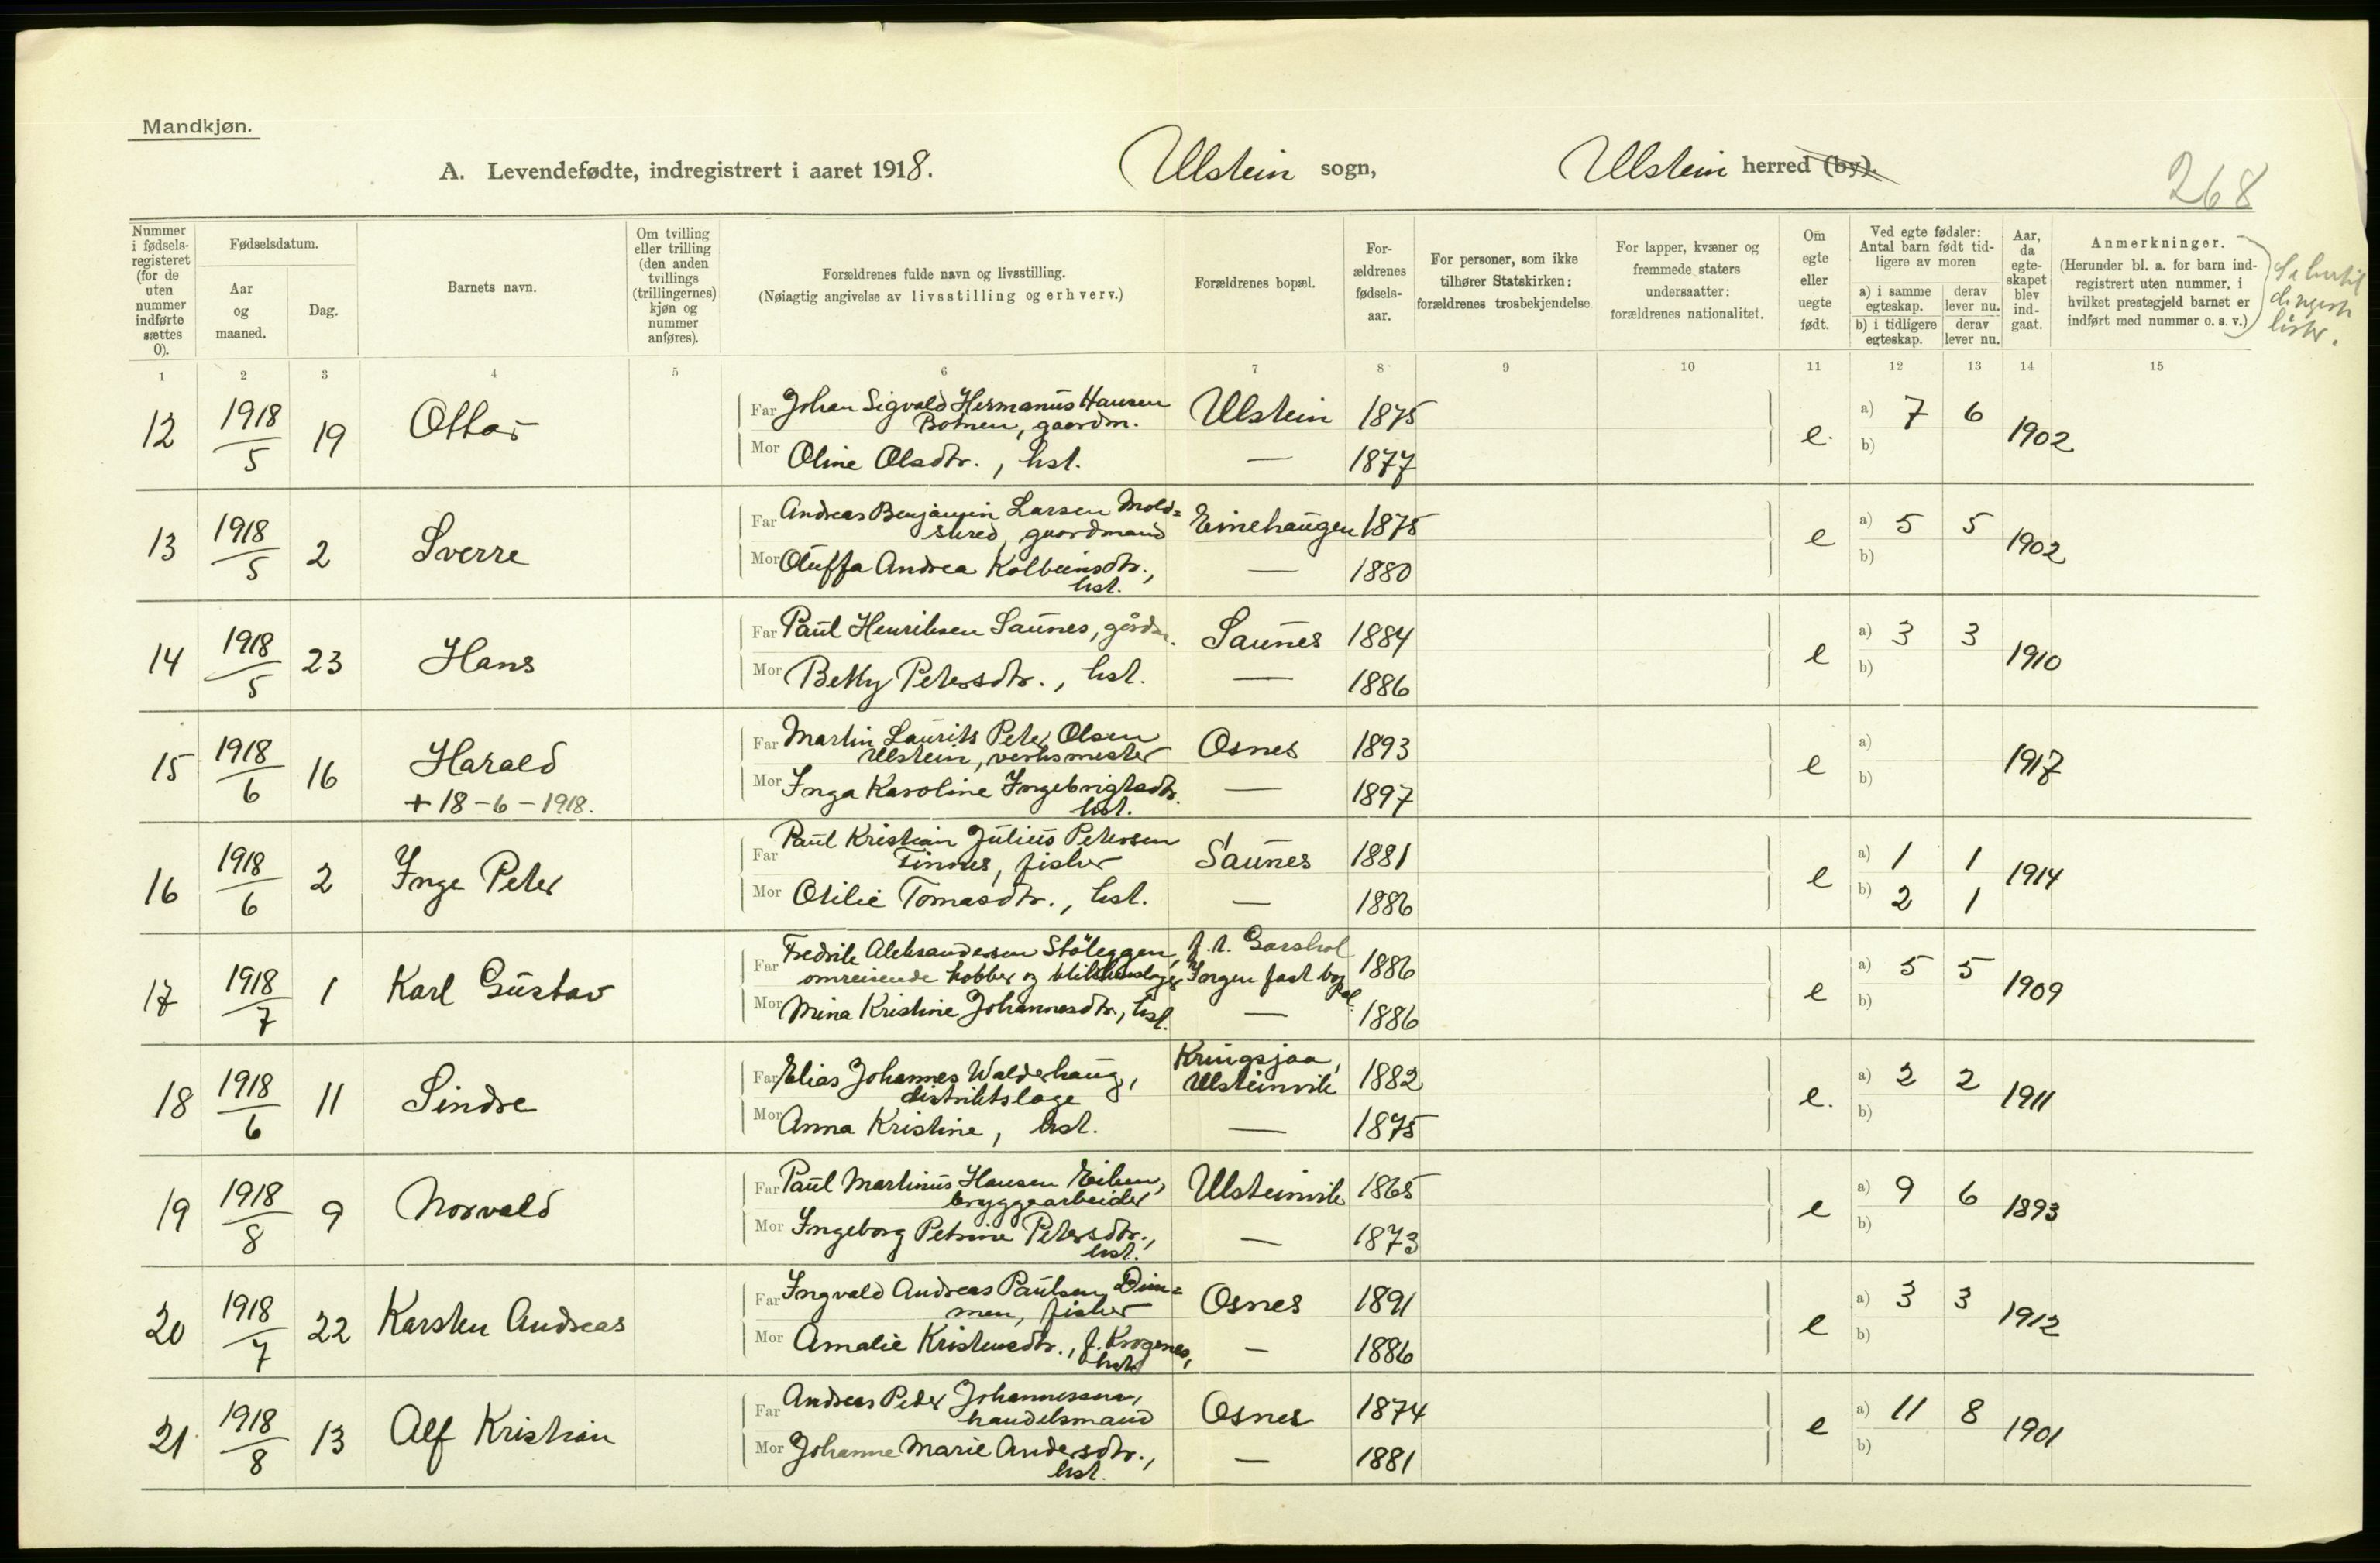 Mandkjøn.
A. Levendefødte, indregistrert i aaret 1918. Ulstein sogn, Ulstein herred (by).
268
Nummer i fødsels-registeret (for de uten nummer indførte sættes 0).
Fødselsdatum.
Aar og maaned.
Dag.
Barnets navn.
Om tvilling eller trilling (den anden tvillings (trillingernes) kjøn og nummer anføres).
Forældrenes fulde navn og livsstilling.
(Nøiagtig angivelse av livsstilling og erhverv.)
Forældrenes bopæl.
For-ældrenes fødsels-aar.
For personer, som ikke tilhører Statskirken: forældrenes trosbekjendelse
For lapper, kvæner og fremmede staters undersaatter: forældrenes nationalitet.
Om egte eller uegte født.
Ved egte fødsler: Antal barn født tid-ligere av moren
a) i samme egteskap.
derav lever nu.
b) i tidligere egteskap.
derav lever nu.
Aar, da egte-skapet blev ind-gaat.
Anmerkninger.
(Herunder bl. a. for barn ind-registrert uten nummer, i hvilket prestegjeld barnet er indført med nummer o. s. v.)
1 2 3 4 5 6 7 8 9 10 11 12 13 14 15
12 1918/5 19 Ottar
Far Johan Sigvald Hermanus Hansen
Botnen, gaardm. Ulstein 1875
Mor Oline Olsdtr., hst. — 1877
e. a) 7 6 b) 1902
13 1918/5 2 Sverre
Far Andreas Benjamin Larsen Mold=
skred, gaardmand Eimehaugen 1875
Mor Oluffa Andrea Kolbeinsdtr.,
hst. — 1880
e a) 5 5 b) 1902
14 1918/5 23 Hans
Far Paul Henriksen Saunes, gårdm. Saunes 1884
Mor Betty Petersdtr., hst. — 1886
e a) 3 3 b) 1910
15 1918/6 16 Harald
+ 18-6-1918.
Far Martin Laurits Peter Olsen
Ulstein, verksmester Osnes 1893
Mor Inga Karoline Ingebrigtsdtr.
hst. — 1897
e a) b) 1917
16 1918/6 2 Inge Peter
Far Paul Kristian Julius Petersen
Finnes, fisker Saunes 1881
Mor Otilie Tomasdtr., hst. — 1886
e a) 1 1 b) 2 1 1914
17 1918/7 1 Karl Gustav
Far Fredrik Aleksandersen Støleggen,
omreisende kobber og blikkenslager
f. t. Garshol
Ingen fast bopæl. 1886
Mor Mina Kristine Johannesdtr., hst. — 1886
e a) 5 5 b) 1909
18 1918/6 11 Sindre
Far Elias Johannes Walderhaug,
distriktslæge
Kringsjaa,
Ulsteinvik 1882
Mor Anna Kristine, hst. — 1875
e. a) 2 2 b) 1911
19 1918/8 9 Norvald
Far Paul Martinus Hansen Eiken,
bryggearbeider Ulsteinvik 1865
Mor Ingeborg Petrine Petersdtr.,
hst. — 1873
e a) 9 6 b) 1893
20 1918/7 22 Karsten Andreas
Far Ingvald Andreas Paulsen Dim=
men, fisker Osnes 1891
Mor Amalie Kristensdtr., f. Krogenes,
hst. — 1886
e a) 3 3 b) 1912
21 1918/8 13 Alf Kristian
Far Andreas Peder Johannessen,
handelsmand Osnes 1874
Mor Johanne Marie Andersdtr.,
hst. — 1881
e a) 11 8 b) 1901